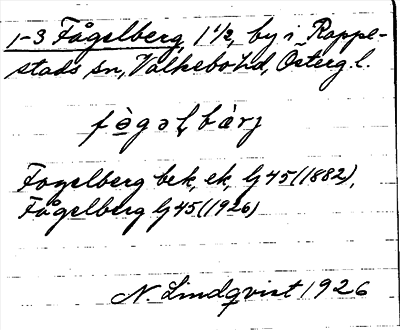 1-3 Fågelberg, 1 1/2, by i Rappe-
stads sn, Valkebo hd, Österg.l.
Fogelberg bek, ek, lj 45 (1882),
Fågelberg lj 45 (1926)
N. Lindqvist 1926